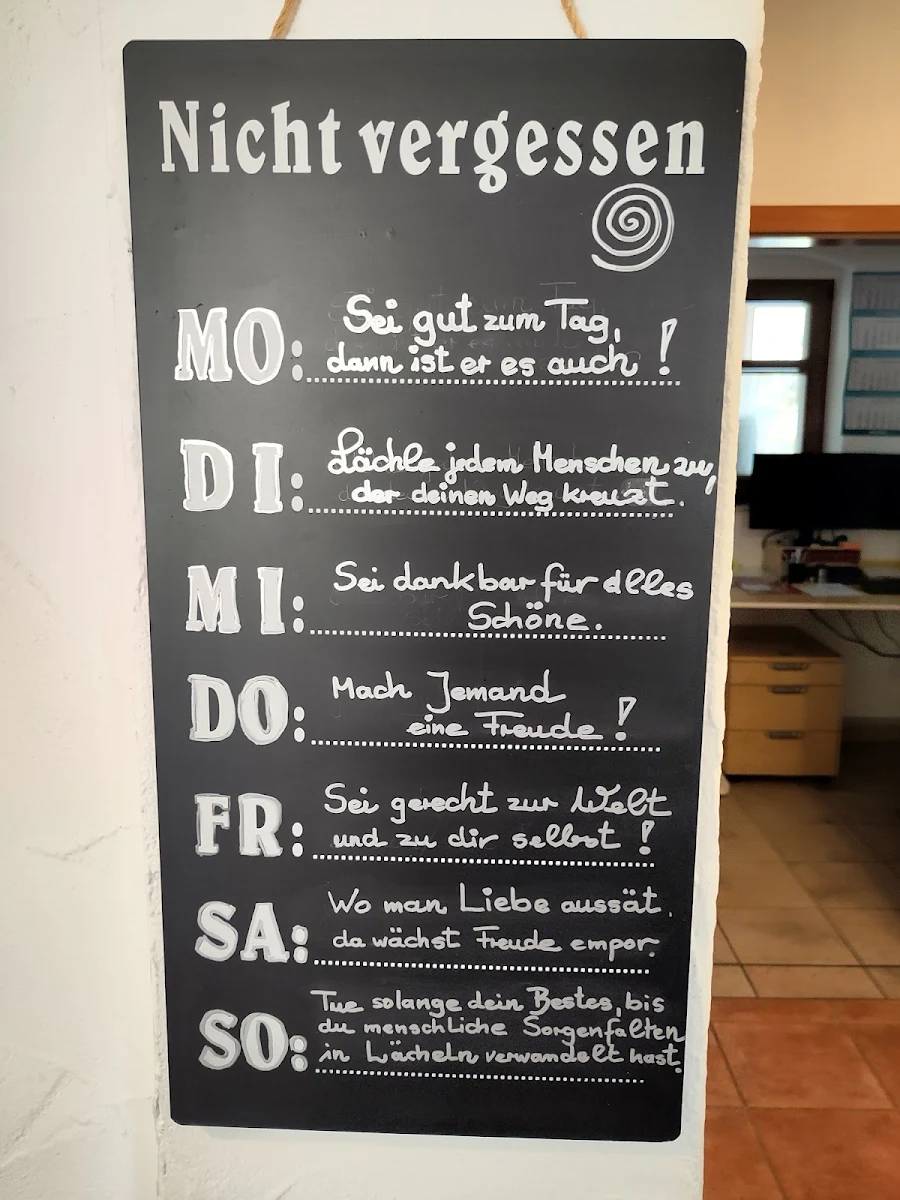 Nicht vergessen
MO: Sei gut zum Tag,
dann ist er es auch!
DI: Lächle jedem Menschen zu,
der deinen Weg kreuzt.
MI: Sei dankbar für alles
Schöne.
DO: Mach Jemand
eine Freude!
FR: Sei gerecht zur Welt
und zu dir selbst!
SA: Wo man Liebe aussät,
da wächst Freude empor.
SO: Tue solange dein Bestes, bis
du menschliche Sorgenfalten
in Lächeln verwandelt hast.